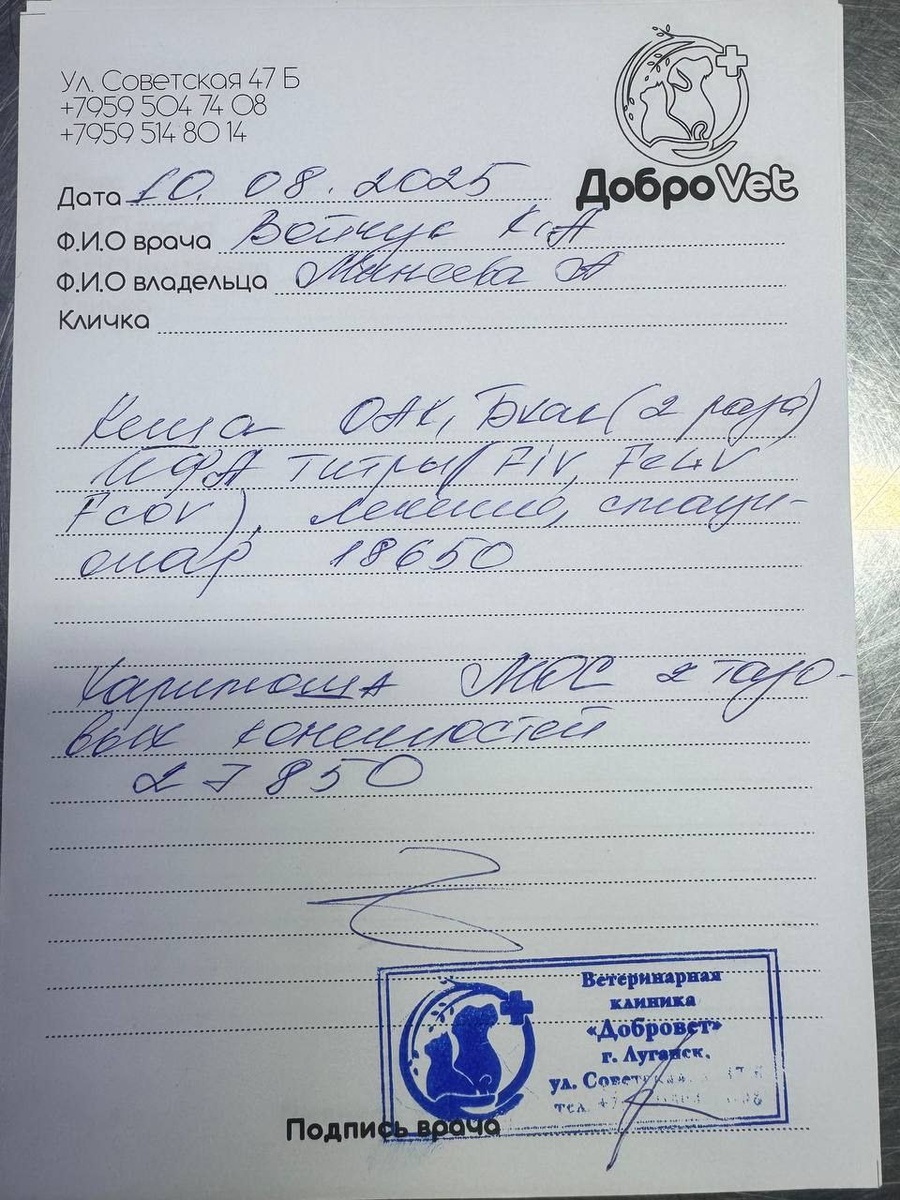 Ул. Советская 47 Б
+7959 504 74 08
+7959 514 80 14
ДоброVet
Дата 10. 08. 2025
Ф.И.О врача Войчук К.А
ФИО владельца Минеева А
Кличка
Кеша ОАК, Бхак (2 раза)
ИФА титры (Fiv, Felv
Fcov), лечение, стаци-
онар 18650
Харитоша МОС 2 тазо-
вых конечностей
27850
Ветеринарная
клиника
«Добровет»
г. Луганск,
ул. Советская,
тел.
Подпись врача